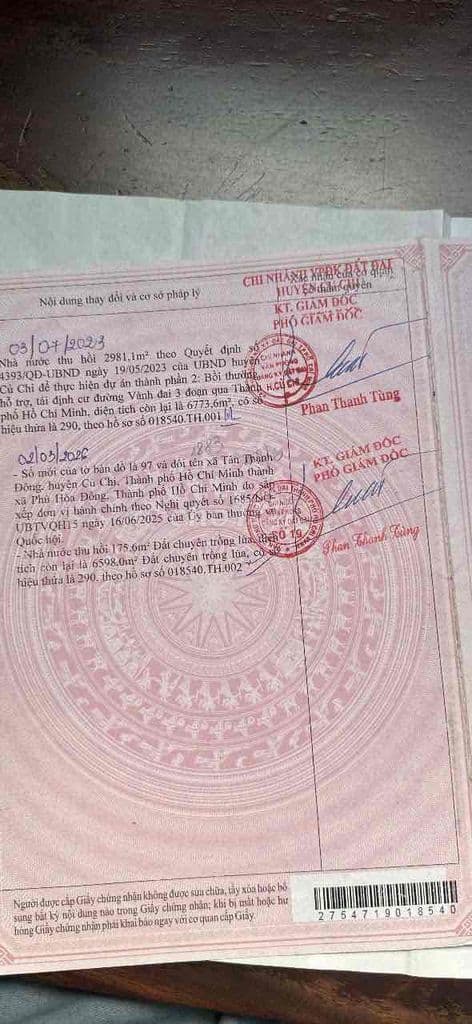 Nội dung thay đổi và cơ sở pháp lý
CHI NHÁNH VPĐK ĐẤT ĐAI
HUYỆN CỦ CHI
KT. GIÁM ĐỐC
PHÓ GIÁM ĐỐC
03/07/2023
Nhà nước thu hồi 2981,1m² theo Quyết định số
4393/QĐ-UBND ngày 19/05/2023 của UBND huyện
Củ Chi để thực hiện dự án thành phần 2: Bồi thường,
hỗ trợ, tái định cư đường Vành đai 3 đoạn qua Thành
phố Hồ Chí Minh, diện tích còn lại là 6773,6m², có số
hiệu thửa là 290, theo hồ sơ số 018540.TH.001
Phan Thanh Tùng
02/03/2026
- Số mới của tờ bản đồ là 97 và đổi tên xã Tân Thạnh
Đông, huyện Củ Chi, Thành phố Hồ Chí Minh thành
xã Phú Hòa Đông, Thành phố Hồ Chí Minh do sắp
xếp đơn vị hành chính theo Nghị quyết số 1685/NQ-
UBTVQH15 ngày 16/06/2025 của Ủy ban thường vụ
Quốc hội.
- Nhà nước thu hồi 175.6m² Đất chuyên trồng lúa, diện
tích còn lại là 6598.0m² Đất chuyên trồng lúa, có số
hiệu thửa là 290, theo hồ sơ số 018540.TH.002
KT. GIÁM ĐỐC
PHÓ GIÁM ĐỐC
Phan Thanh Tùng
Người được cấp Giấy chứng nhận không được sửa chữa, tẩy xóa hoặc bổ
sung bất kỳ nội dung nào trong Giấy chứng nhận; khi bị mất hoặc hư
hỏng Giấy chứng nhận phải khai báo ngay với cơ quan cấp Giấy.
2754719018540